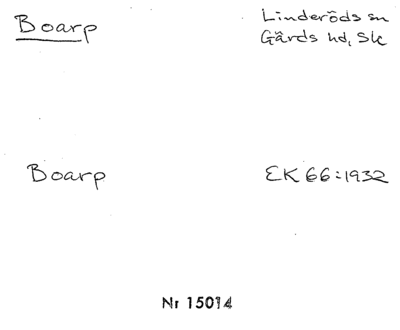 Boarp
Linderöds sn
Gärds hd, Sk
Boarp
EK 66:1932
Nr 15014